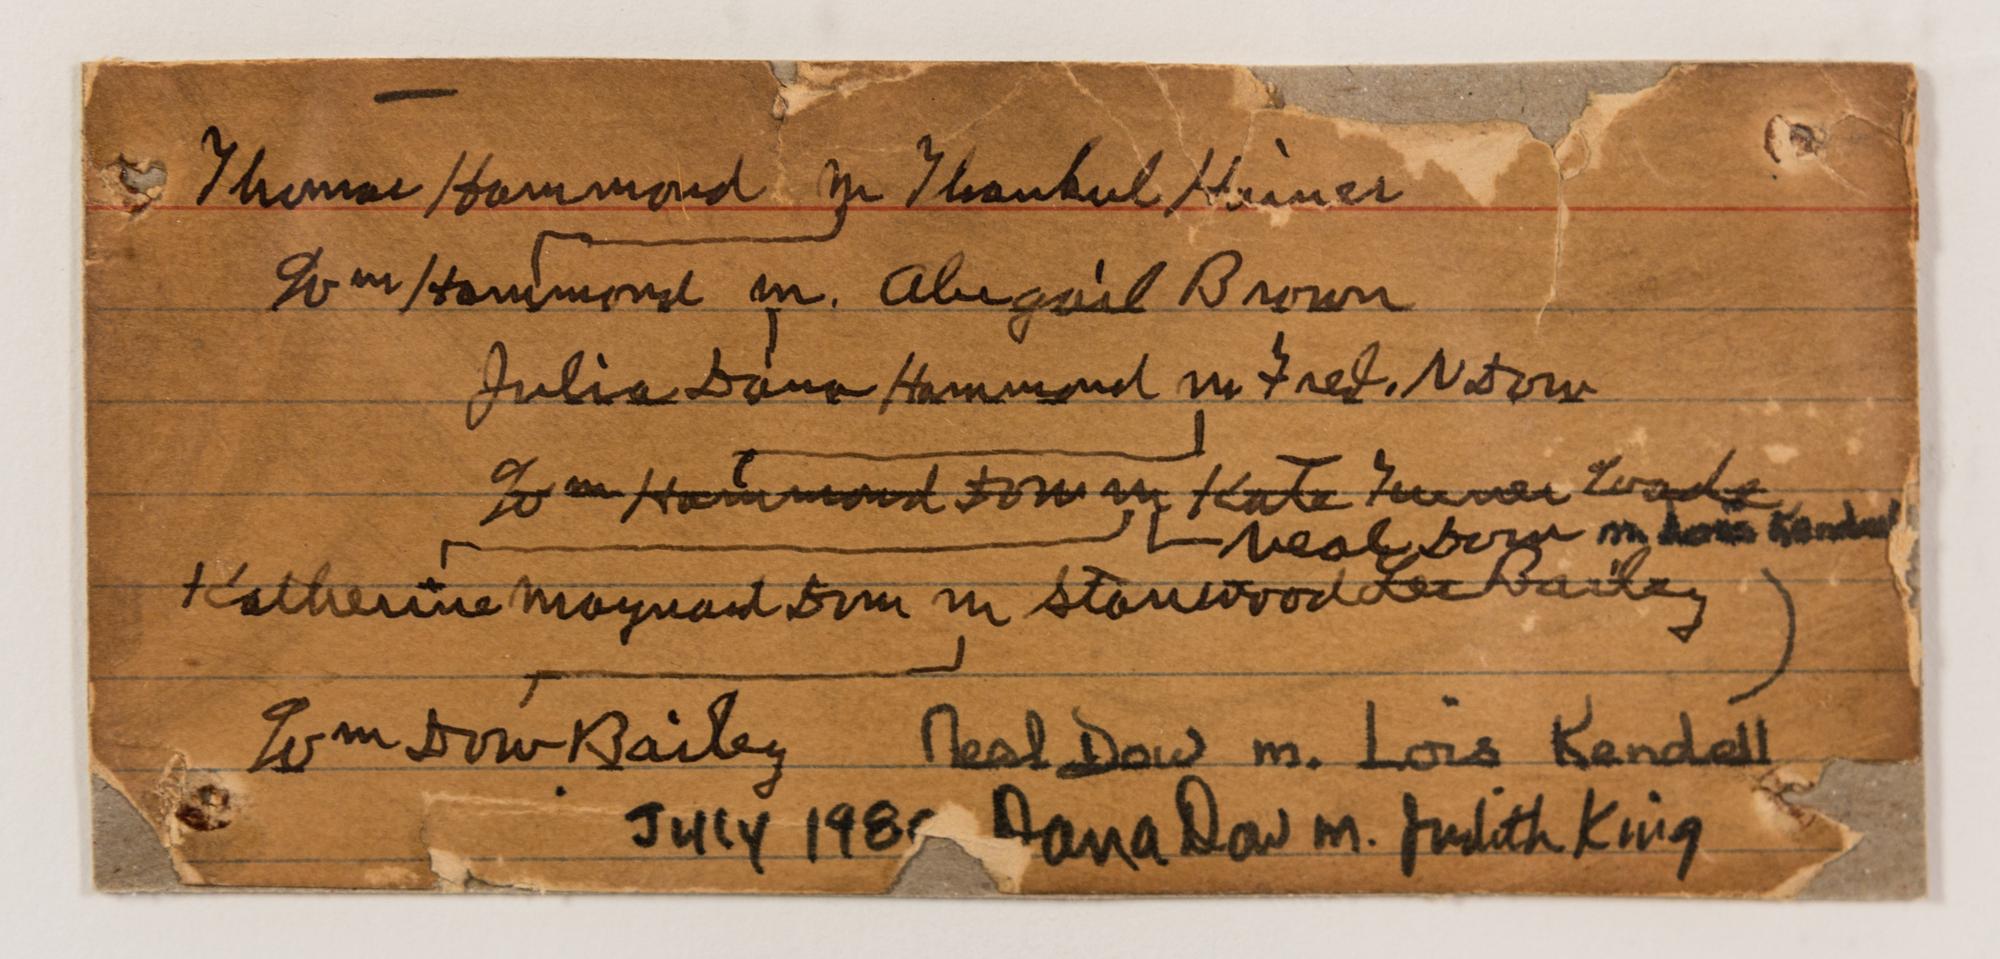 Thomas Hammond m Thankul
Wm Hammond m. Abigail Brown
Julia Dana Hammond m Fred. N Dow
Wm Hammond Dow m Kate Turner Wade
Neal Dow m Lois Kendall
Katherine Maynard Dow m Stanwood Lee Bailey
Wm Dow Bailey Neal Dow m. Lois Kendall
July Dana Dow m. Judith King